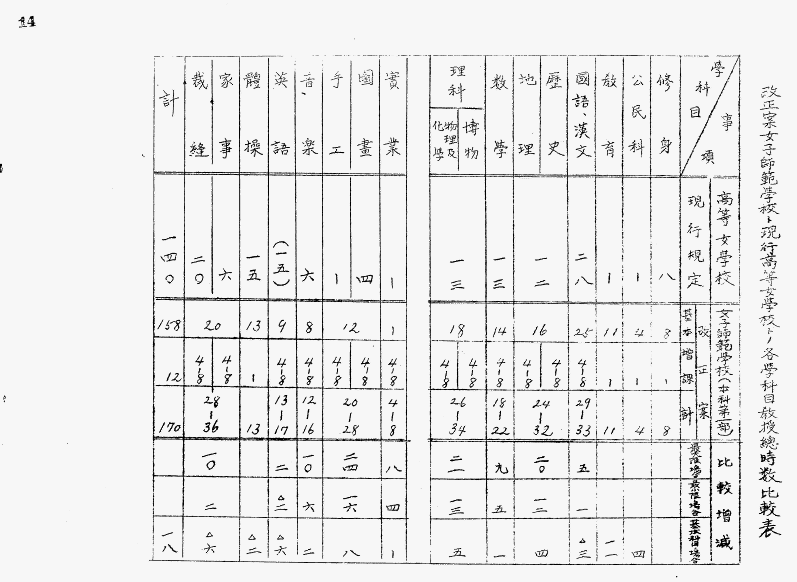 14
改正案女子師範學校ト現行高等女學校トノ各學科目教授總時數比較表
學科目
事項
高等女學校
現行規定
女子師範學校(本科第一部)
改正案
基本
增課
計
比較增減
修身
八
8
|
8
公民科
|
4
|
4
四
教育
|
11
|
11
一一
國語、漢文
二八
25
4-8
29-33
五
一
△三
歷史
地理
一二
16
4-8
4-8
24-32
二〇
一二
四
數學
一三
14
4-8
18-22
九
五
一
理科
博物
物理及化學
一三
18
4-8
4-8
26-34
二一
一三
五
實業
|
|
4-8
4-8
八
四
|
圖畫
四
手工
|
12
4-8
4-8
20-28
二四
一六
八
音樂
六
8
4-8
12-16
一〇
六
二
英語
(一五)
9
4-8
13-17
二
△二
△六
體操
一五
13
|
13
△二
家事
六
裁縫
二〇
20
4-8
4-8
28-36
一〇
二
△六
計
一四〇
158
12
170
一八